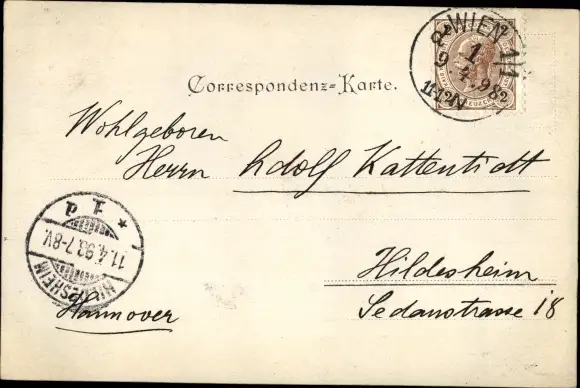 WIEN 1/1
9 4 98
11-12V
Correspondenz-Karte.
Wohlgeboren
Herrn Adolf Kattentidt
11.4.98.7-8V.
HILDESHEIM
Hildesheim
Hannover
Sedanstrasse 18